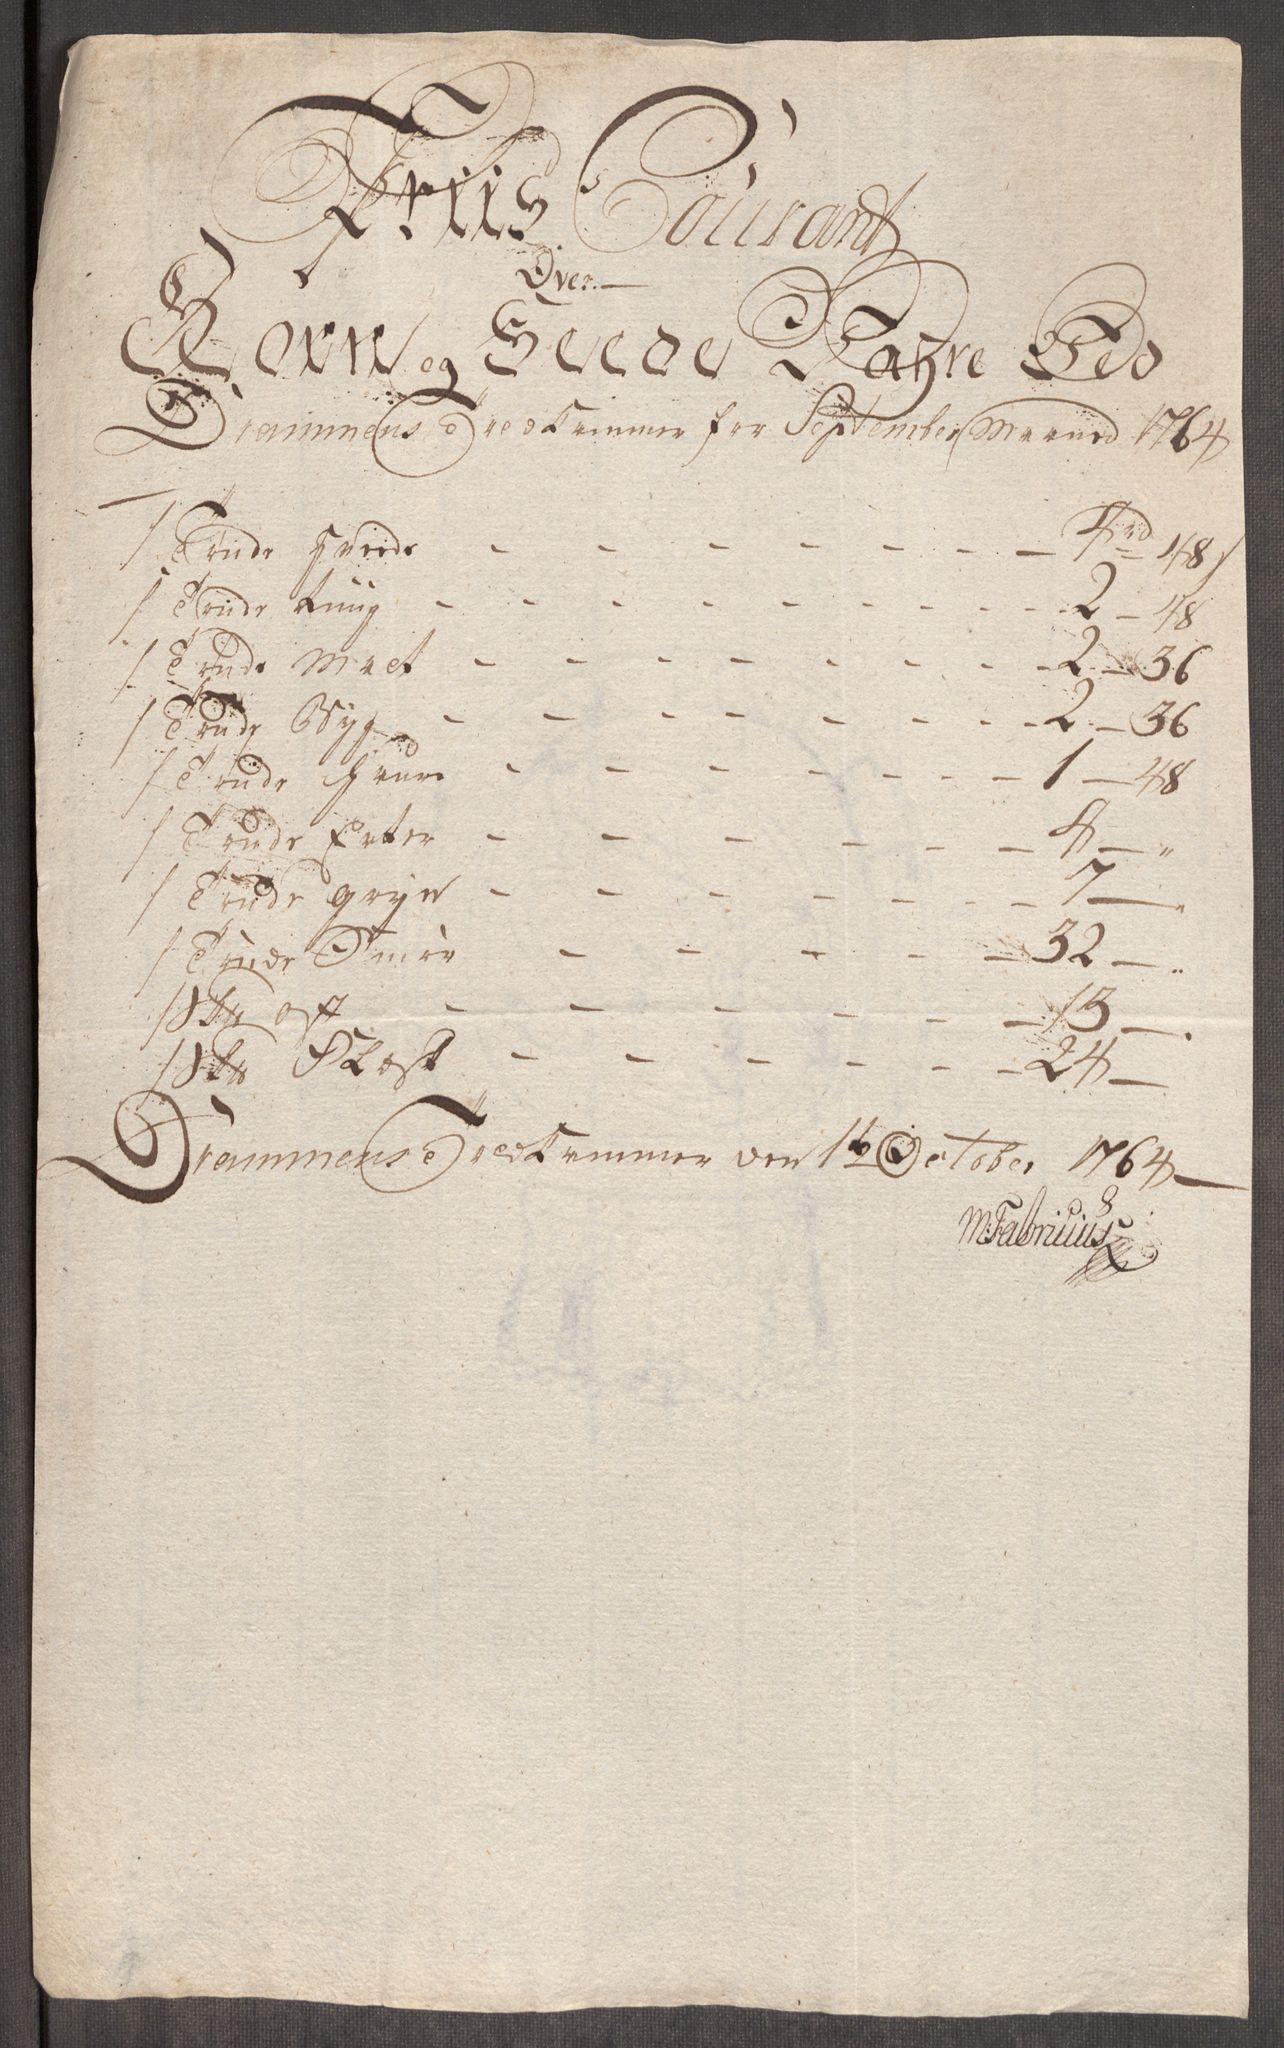 Priis Courant
Over
Korn og Feede Vahre Ved
Drammens Træekammer for September Maaned 1764
1 Tønde Hvede - - - - - - - 4rd 48 s
1 Tønde Rüug - - - - - - - - - 2 - 48
1 Tønde Malt - - - - - - - 2 - 36
1 Tønde Byg - - - - - - - - 2 - 36
1 Tønde Havre - - - - - - - 1 - 48
1 Tønde Erter - - - - - - 4 - "
1 Tønde gryn - - - - - - 7 - "
1 Tønde Smör - - - - - 32 - "
1 ost - - - - - - 13 -
1 Flesk - - - - - - 24 -
Drammens Træekammer den 1te October 1764
M: Fabricius